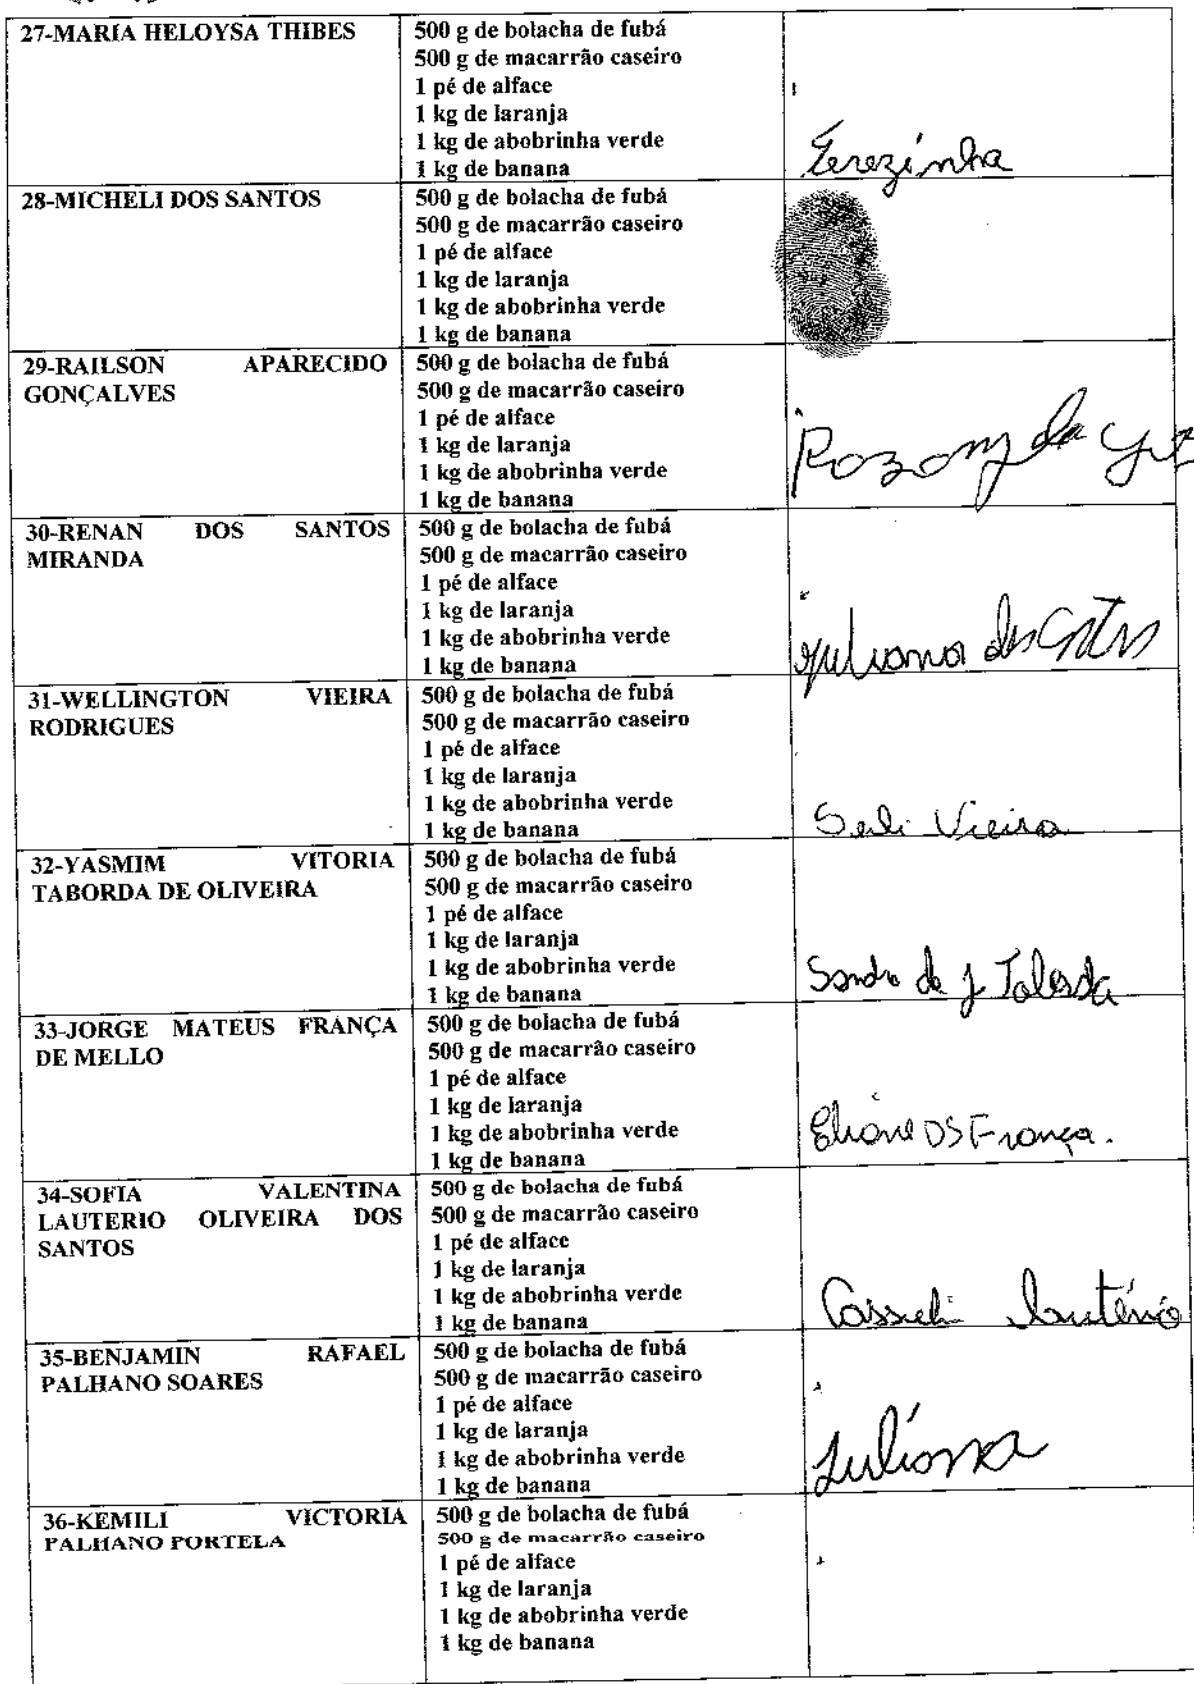 27-MARIA HELOYSA THIBES
500 g de bolacha de fubá
500 g de macarrão caseiro
1 pé de alface
1 kg de laranja
1 kg de abobrinha verde
1 kg de banana
Terezinha
28-MICHELI DOS SANTOS
500 g de bolacha de fubá
500 g de macarrão caseiro
1 pé de alface
1 kg de laranja
1 kg de abobrinha verde
1 kg de banana
29-RAILSON APARECIDO
GONÇALVES
500 g de bolacha de fubá
500 g de macarrão caseiro
1 pé de alface
1 kg de laranja
1 kg de abobrinha verde
1 kg de banana
30-RENAN DOS SANTOS
MIRANDA
500 g de bolacha de fubá
500 g de macarrão caseiro
1 pé de alface
1 kg de laranja
1 kg de abobrinha verde
1 kg de banana
Juliana dos
31-WELLINGTON VIEIRA
RODRIGUES
500 g de bolacha de fubá
500 g de macarrão caseiro
1 pé de alface
1 kg de laranja
1 kg de abobrinha verde
1 kg de banana
Vieira
32-YASMIM VITORIA
TABORDA DE OLIVEIRA
500 g de bolacha de fubá
500 g de macarrão caseiro
1 pé de alface
1 kg de laranja
1 kg de abobrinha verde
1 kg de banana
Sandra de J Taborda
33-JORGE MATEUS FRANÇA
DE MELLO
500 g de bolacha de fubá
500 g de macarrão caseiro
1 pé de alface
1 kg de laranja
1 kg de abobrinha verde
1 kg de banana
Eliane DS França.
34-SOFIA VALENTINA
LAUTERIO OLIVEIRA DOS
SANTOS
500 g de bolacha de fubá
500 g de macarrão caseiro
1 pé de alface
1 kg de laranja
1 kg de abobrinha verde
1 kg de banana
Cassieli Lautério
35-BENJAMIN RAFAEL
PALHANO SOARES
500 g de bolacha de fubá
500 g de macarrão caseiro
1 pé de alface
1 kg de laranja
1 kg de abobrinha verde
1 kg de banana
Juliana
36-KEMILI VICTORIA
PALHANO PORTELA
500 g de bolacha de fubá
500 g de macarrão caseiro
1 pé de alface
1 kg de laranja
1 kg de abobrinha verde
1 kg de banana